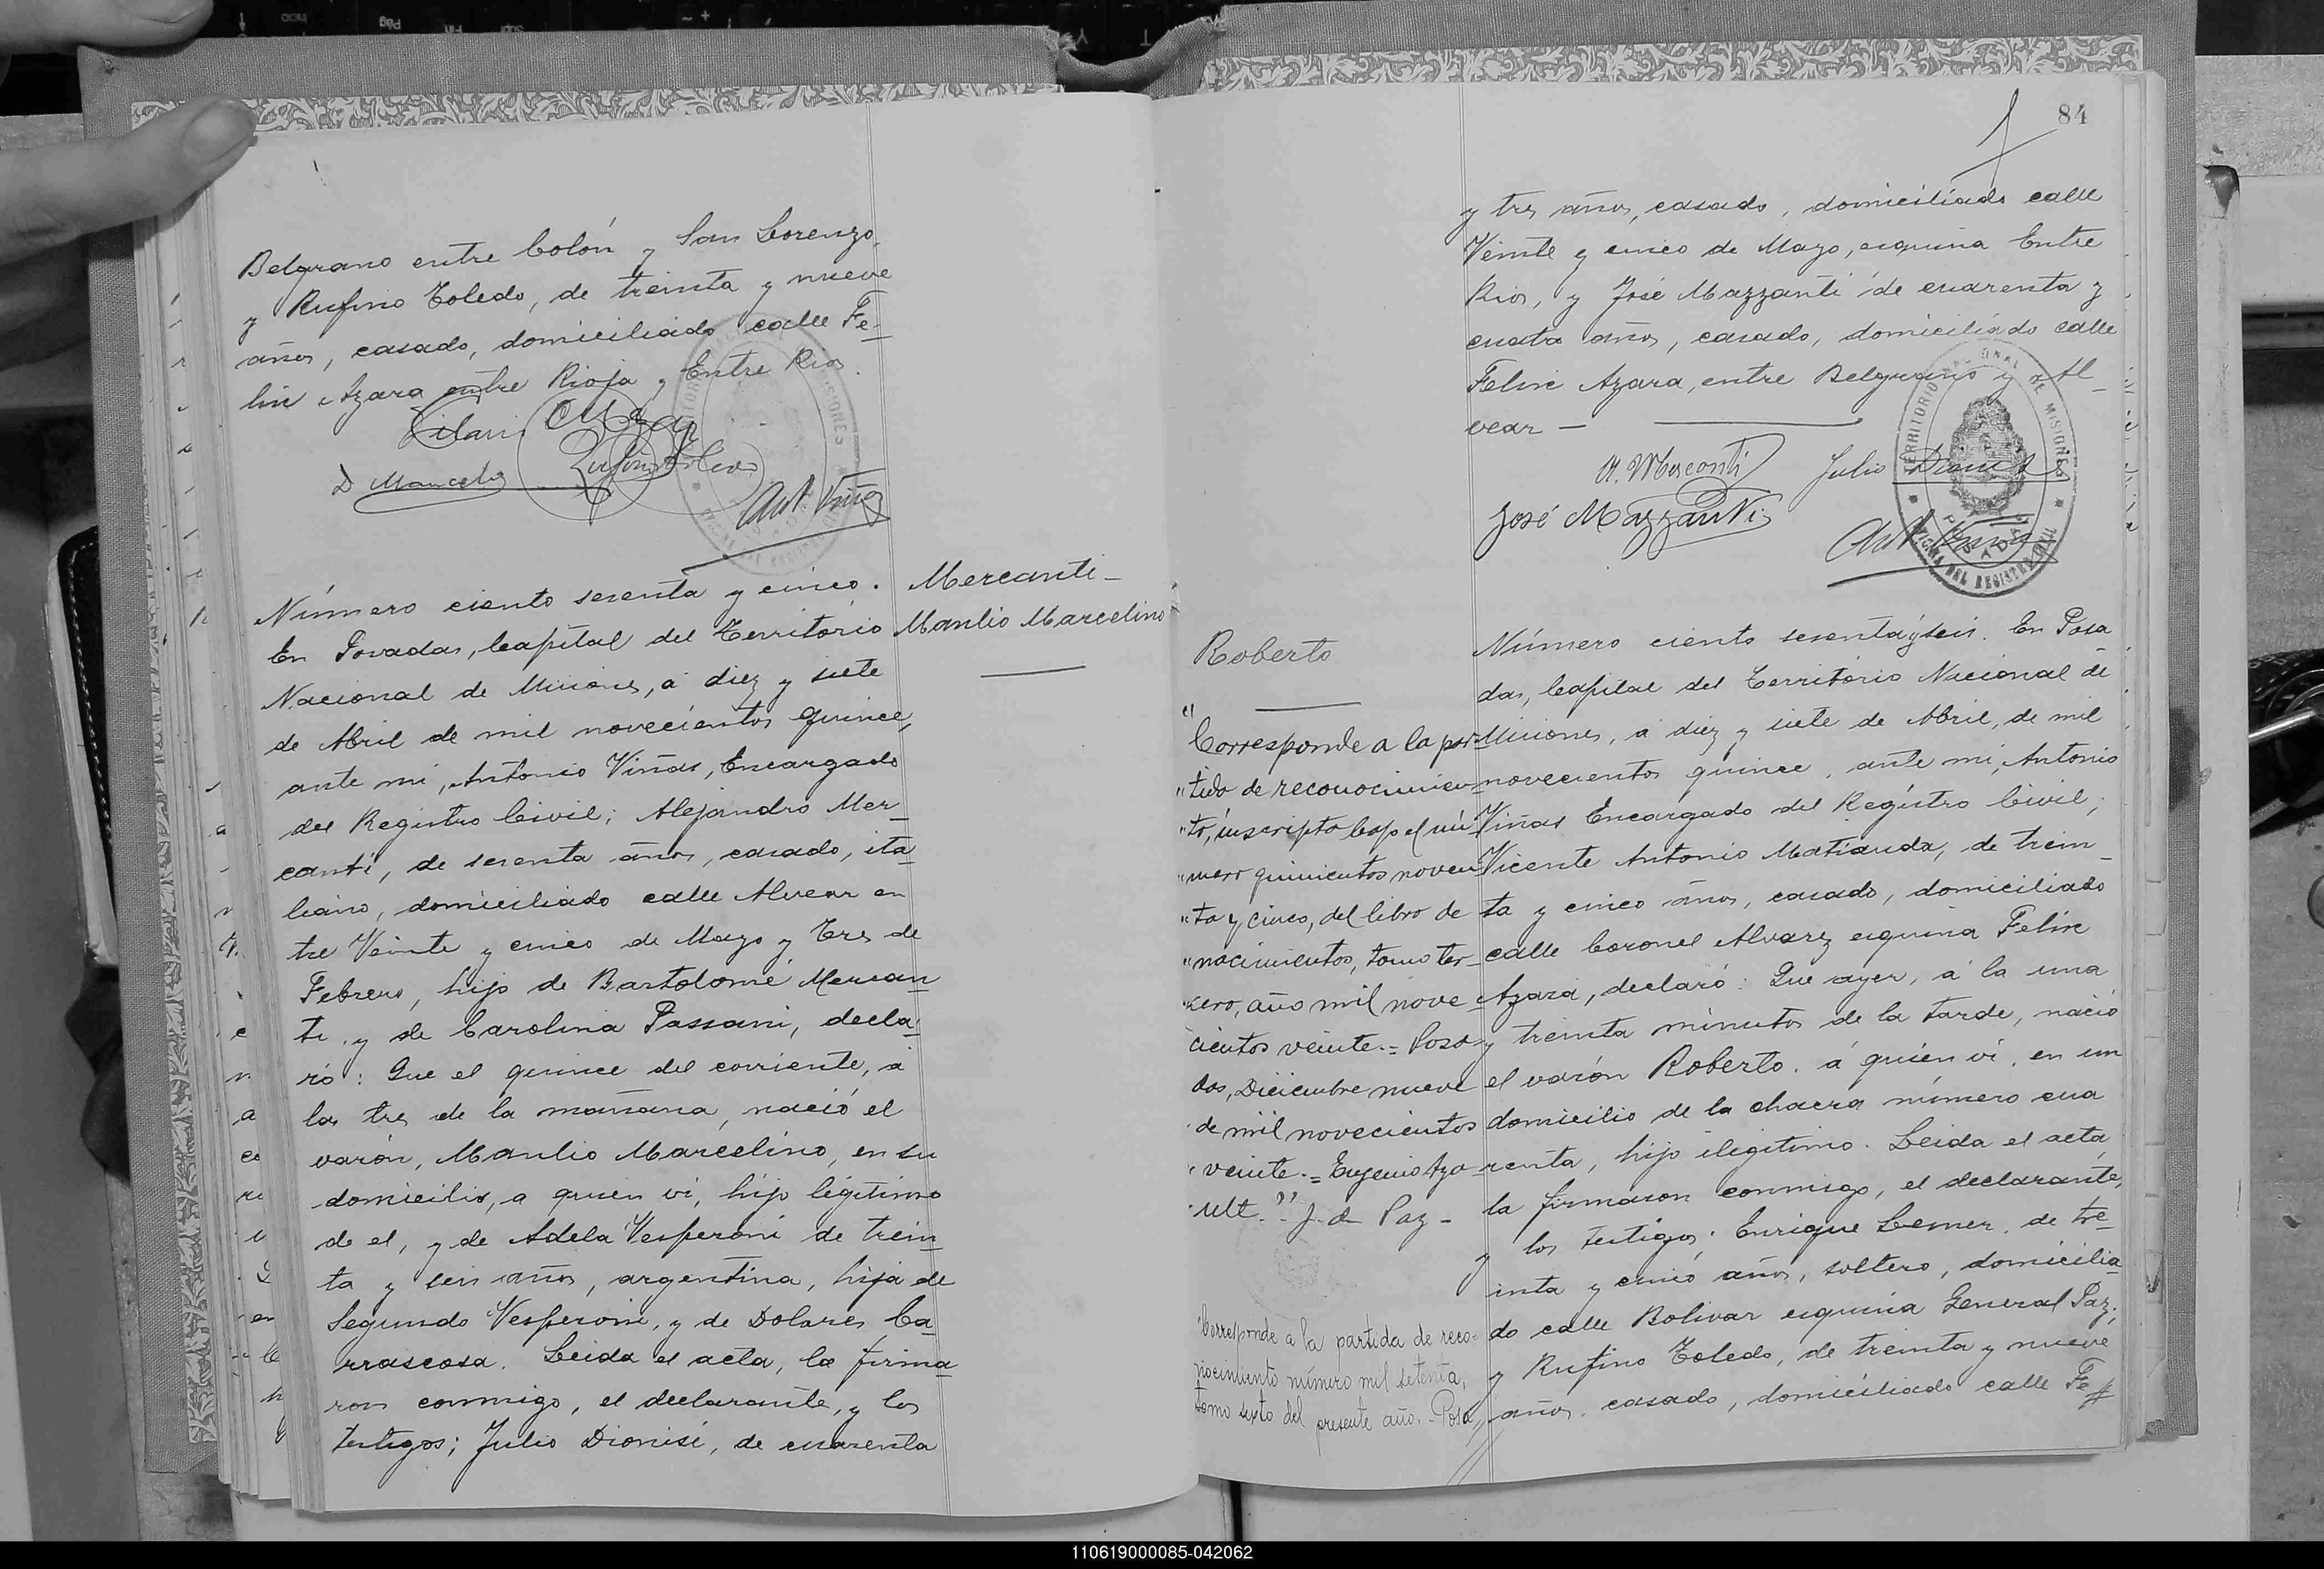 Belgrano entre Colón y San Lorenzo,
y Rufino Toledo, de treinta y nueve
años, casado, domiciliado calle Fe-
lix Azara entre Rioja y Entre Rios.
D Marcelo
Ant. Viñas
Número ciento sesenta y cinco.
En Posadas, Capital del Territorio
Nacional de Misiones, á diez y siete
de Abril de mil novecientos quince,
ante mi, Antonio Viñas, Encargado
del Registro Civil; Alejandro Mer-
canti, de sesenta años, casado, ita-
liano, domiciliado calle Alvear en
tre Veinte y cinco de Mayo y Tres de
Febrero, hijo de Bartolomé Mercan
ti y de Carolina Passani, decla-
ró: Que el quince del corriente, á
las tres de la mañana, nació el
varón, Manlio Marcelino, en su
domicilio, a quien vi, hijo legítimo
de el, y de Adela Vesperoni de trein-
ta y seis años, argentina, hija de
Segundo Vesperoni, y de Dolores Ca-
rrascosa. Leida el acta, la firma-
ron conmigo, el declarante, y los
testigos; Julio Dionisi, de cuarenta
Mercanti-
Manlio Marcelino
84
y tres años, casado, domiciliado calle
Veinte y cinco de Mayo, esquina Entre
Rios, y José Mazzanti de cuarenta y
cuatro años, casado, domiciliado calle
Felix Azara, entre Belgrano y Al-
vear —
A. Mercanti Julio Dionisi
José Mazzanti
Ant. Viñas
TERRITORIO NACIONAL DE MISIONES
OFICINA DEL REGISTRO CIVIL
POSADAS
Roberto
"Corresponde a la par-
"tida de reconocimien-
"to, inscripta bajo el nú-
"mero quinientos noven-
"ta y cinco, del libro de
"nacimientos, tomo ter-
"cero, año mil nove-
cientos veinte.= Posa-
das, Diciembre nueve
de mil novecientos
"veinte.= Eugenio Azo
ult." J. de Paz -
Corresponde a la partida de reco-
nocimiento número mil setenta,
tomo sexto del presente año. - Posa,,
Número ciento sesenta y seis. En Posa
das, Capital del Territorio Nacional de
Misiones, á diez y siete de Abril, de mil
novecientos quince, ante mi, Antonio
Viñas Encargado del Registro Civil;
Vicente Antonio Matiauda, de trein-
ta y cinco años, casado, domiciliado
calle Coronel Alvarez esquina Felix
Azara, declaró: Que ayer, á la una
y treinta minutos de la tarde, nació
el varón Roberto. á quien vi, en un
domicilio de la chacra número cua
renta, hijo ilegítimo. Leida el acta,
la firmaron conmigo, el declarante,
y los testigos; Enrique Lemer, de tre-
inta y cinco años, soltero, domicilia-
do calle Bolivar esquina General Paz;
y Rufino Toledo, de treinta y nueve
años. casado, domiciliado calle Fe#
110619000085-042062